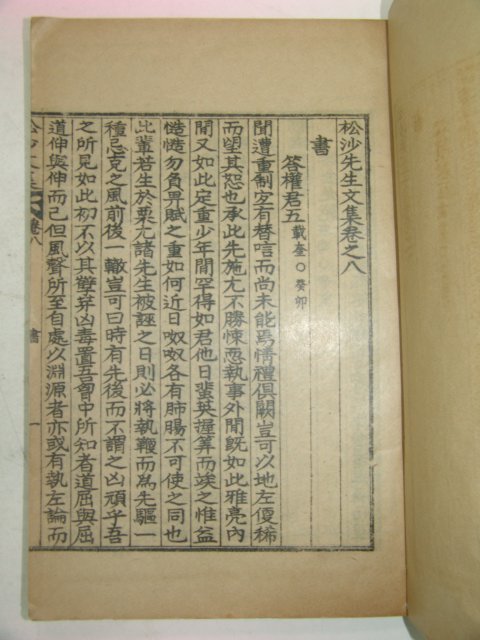 松沙先生文集卷之八
書
答權君五載奎○癸卯
聞遭重制宜有替唁而尚未能焉情禮俱闕豈可以地左便稀
而望其恕也承此先施尤不勝悚恧執事外聞旣如此雅亮內
聞又如此定重少年間罕得如君他日蜚英握算而竢之惟益
慥慥勿負畀賦之重如何近日呶呶各有肺腸不可使之同也
此輩若生於栗尤諸先生被誣之日則必將執鞭而爲先驅一
種忌克之風前後一轍豈可曰時有先後而不謂之凶頑乎吾
之所見如此初不以其嚚穽凶毒置吾會中所知者道屈與屈
道伸與伸而己但風聲所至自處以淵源者亦或有執左論而
松沙文集 卷八 書 一